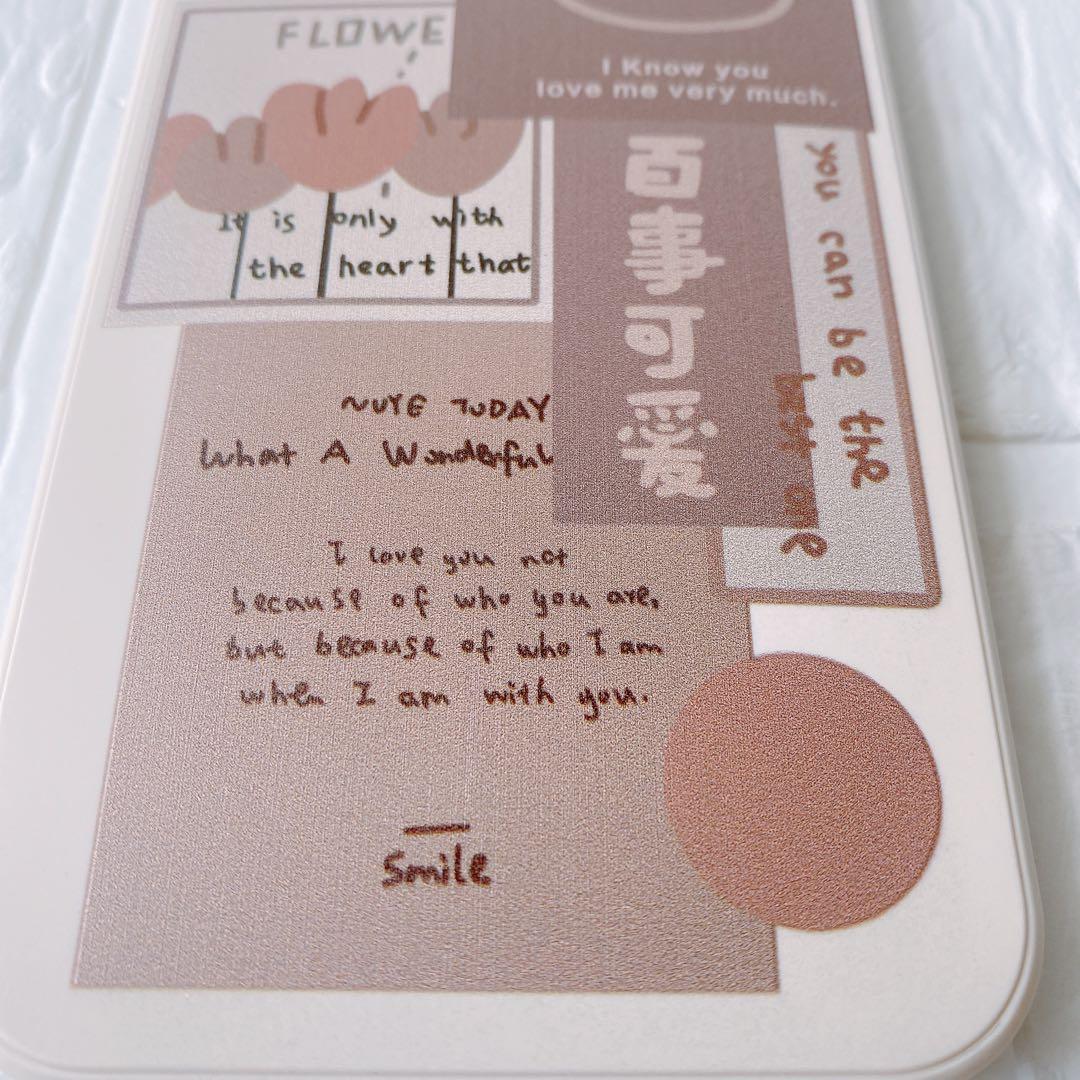 FLOWE
It is only with
the heart that
I Know you
love me very much.
百事可愛
you can be the
best one
NUYE TODAY
What A Wonderful
I love you not
because of who you are,
but because of who I am
when I am with you.
Smile